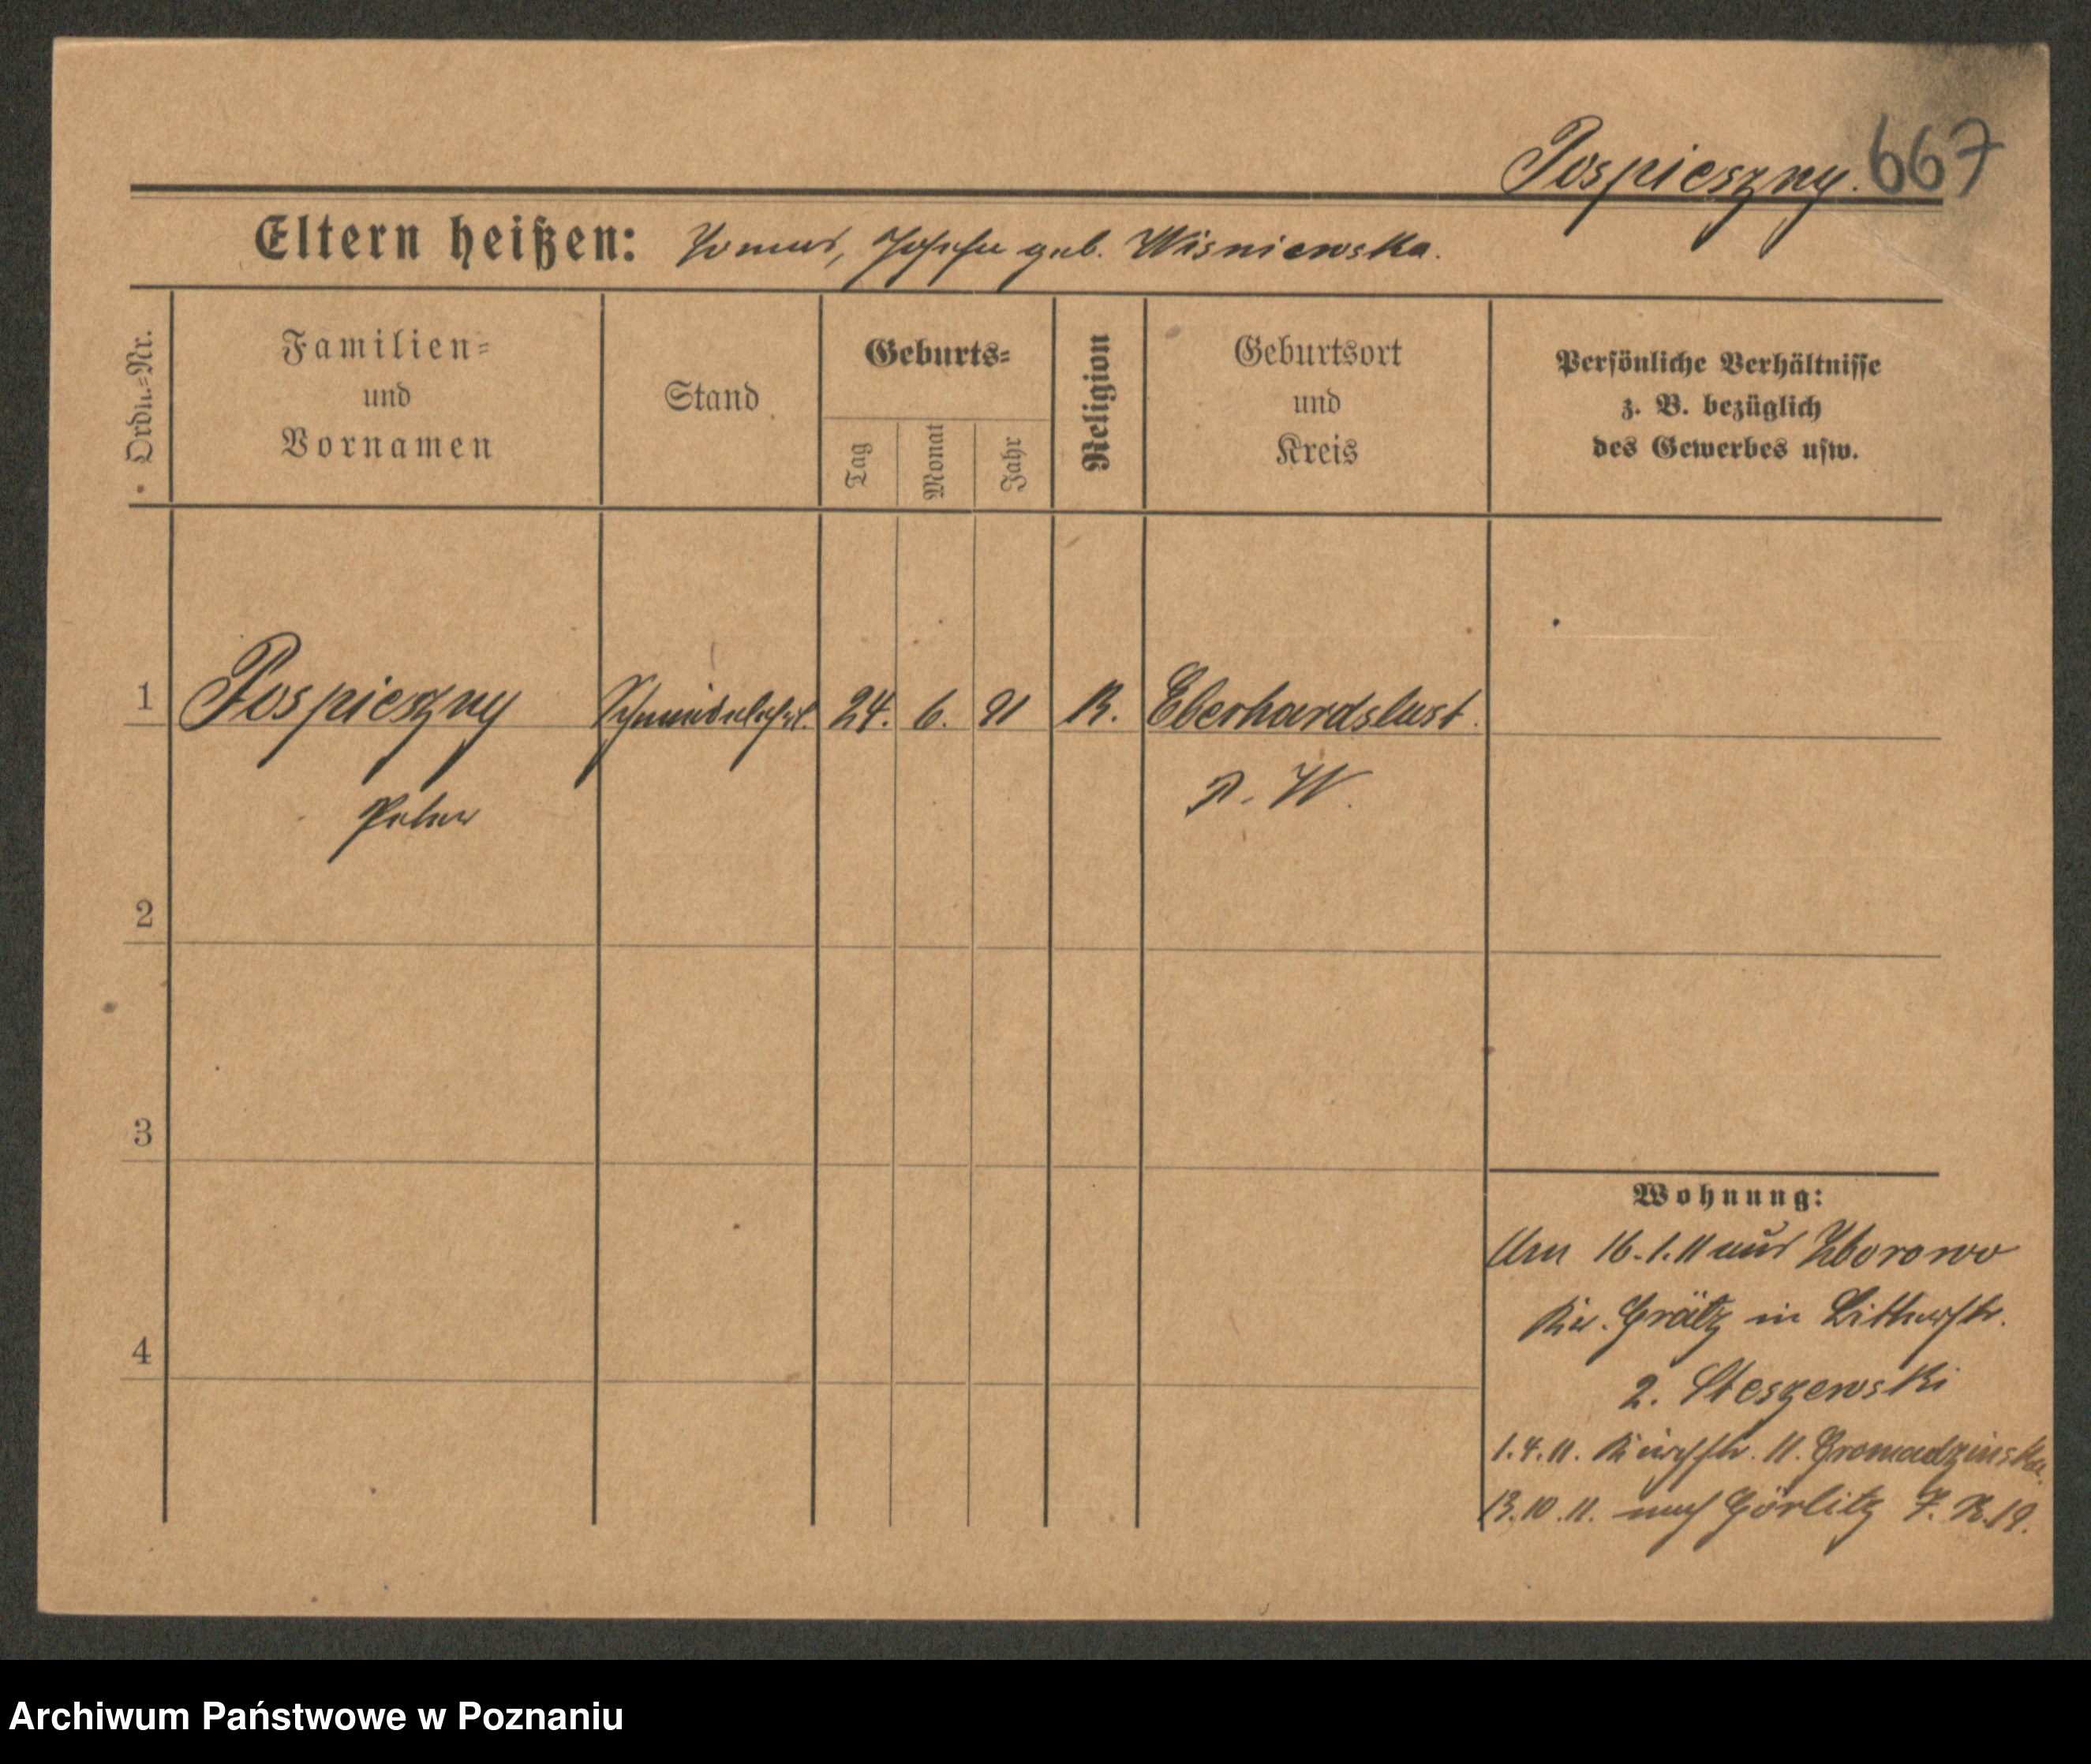 Pospieszny. 667
Eltern heißen: Tomas, Josefa geb. Wisniewska.
Ordn.=Nr.
Familien=
und
Vornamen
Stand
Geburts=
Tag
Monat
Jahr
Religion
Geburtsort
und
Kreis
Persönliche Verhältnisse
z. B. bezüglich
des Gewerbes usw.
1 Pospieszny Schmiedelehrl. 24. 6. 91 K. Eberhardslust.
Peter P. W.
2
3
4
Wohnung:
Am 16.1.11 aus Zborowo
Kr. Grätz in
2. Steszewski
1.4.11. Kirchstr. 11. Gromadzinska.
13.10.11. nach Görlitz
Archiwum Państwowe w Poznaniu